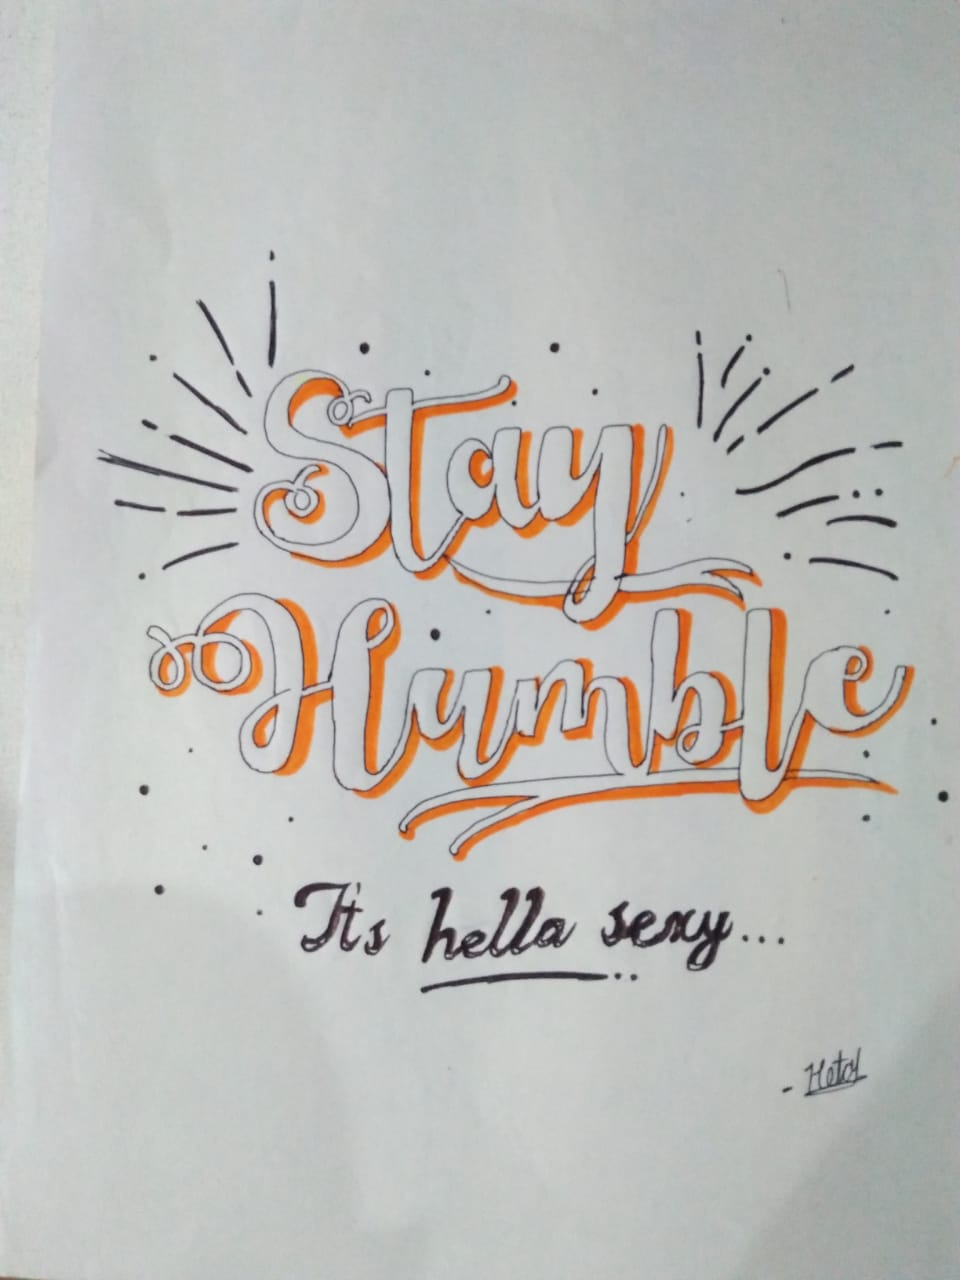 Stay
Humble
It's hella sexy...